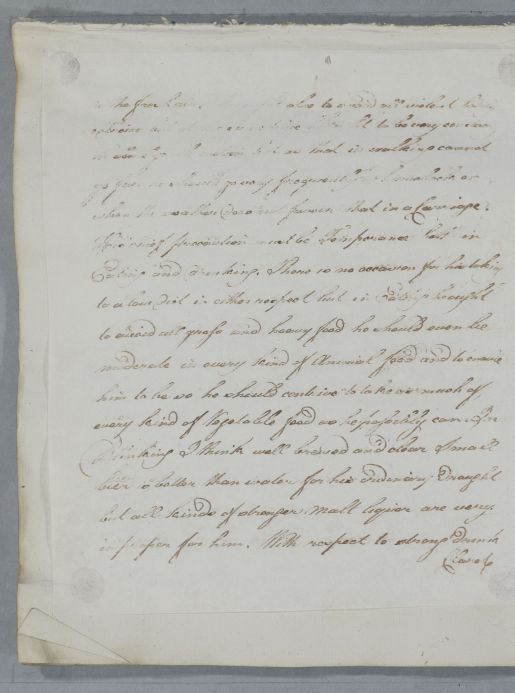 in the free air. ought also to avoid all violent
to be very
in going but as that in walking cannot
go far he should go very frequently on horseback or
when the weather does not favour that in a Carriage.
precaution must be Temperance both in
Eating and drinking. There is no occasion for his taking
to a low Diet in either respect but in Eating he ought
to avoid all gross and heavy food he should even be
moderate in every kind of Animal food and to enable
him to be so he should contrive to take as much of
every kind of Vegetable food as he possibly can. In
Drinking I think well brewed and clear Small
beer is better than water for his ordinary Draught
but all kinds of stronger malt liquor are very
improper for him. With respect to strong Drink
Claret